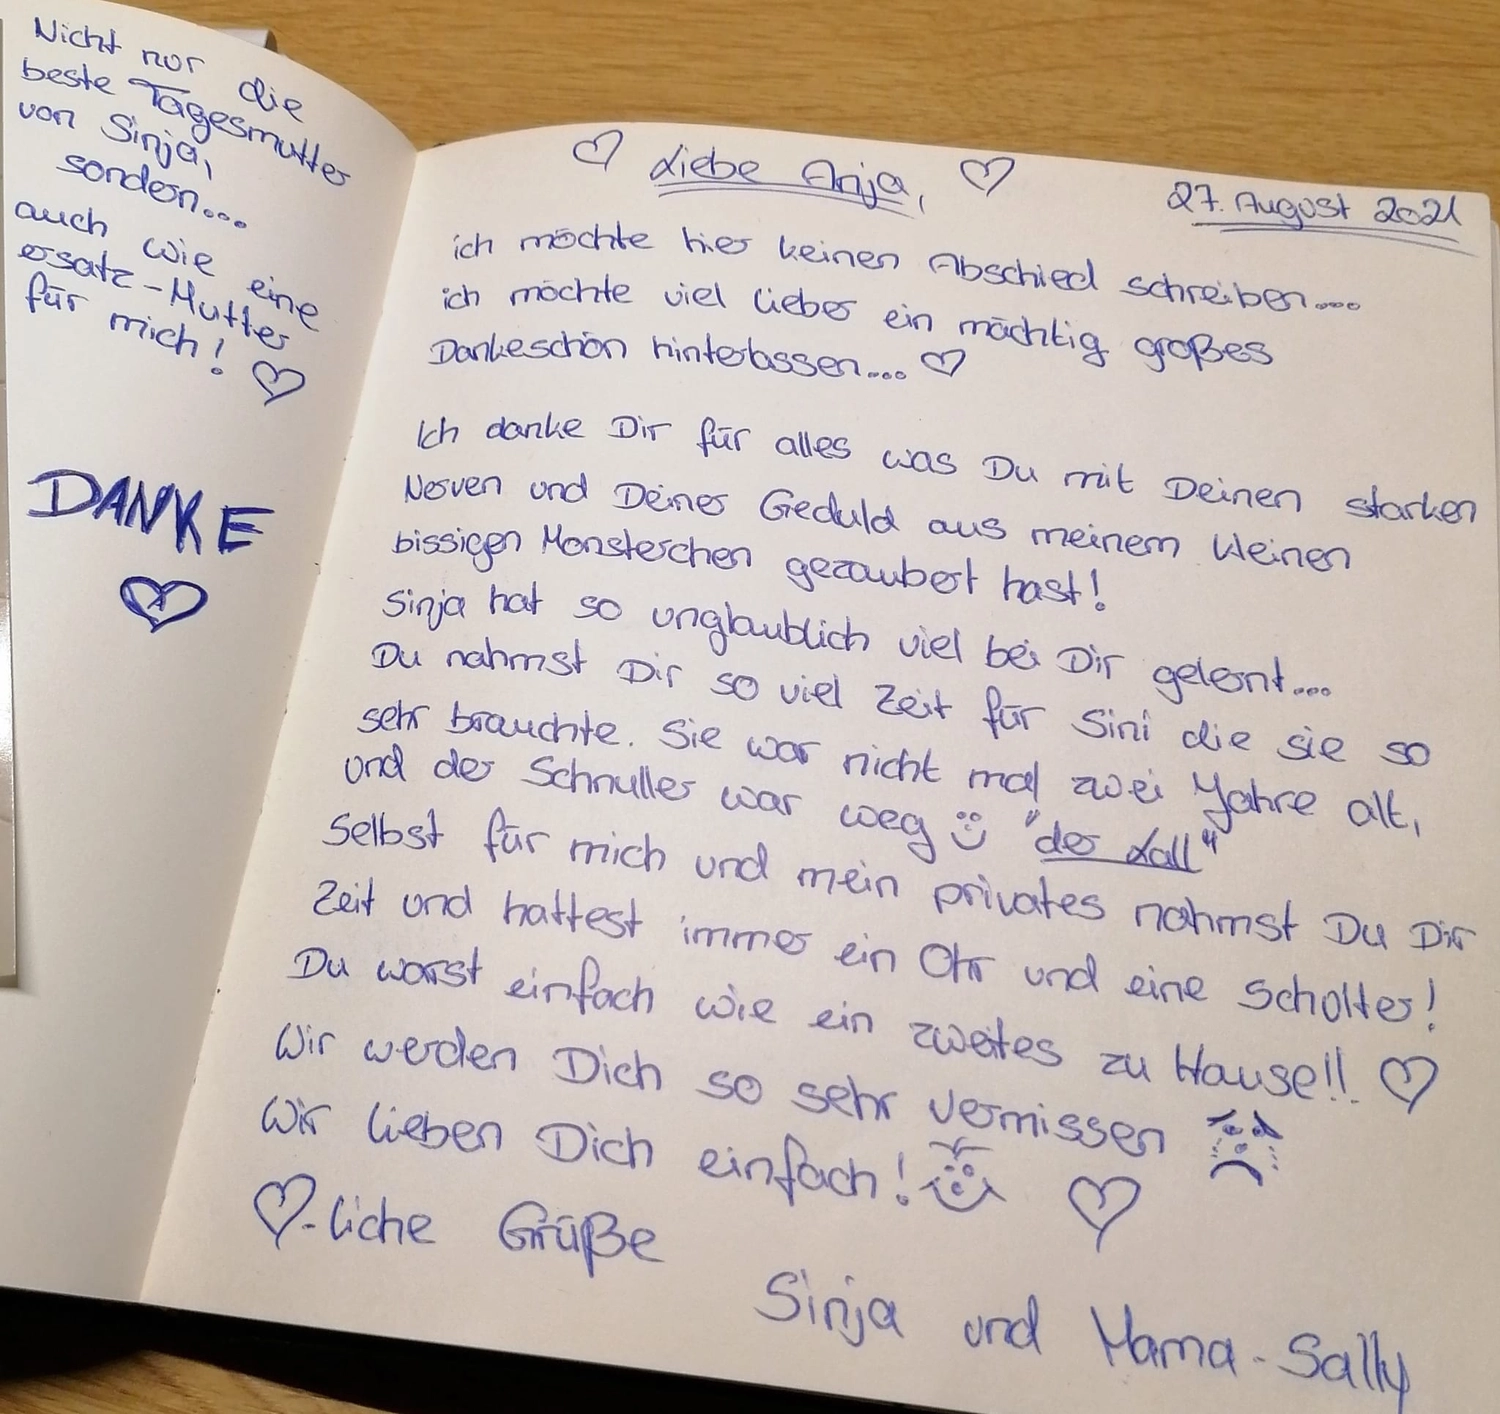 Nicht nur die
beste Tagesmutter
von Sinja,
sondern...
auch wie eine
ersatz-Mutter
für mich! ♡
DANKE
♡
♡ Liebe Anja, ♡
27. August 2021
ich möchte hier keinen Abschied schreiben....
ich möchte viel lieber ein mächtig großes
Dankeschön hinterlassen.... ♡
Ich danke Dir für alles was Du mit Deinen starken
Nerven und Deiner Geduld aus meinem kleinen
bissigen Monsterchen gezaubert hast!
Sinja hat so unglaublich viel bei Dir gelernt....
Du nahmst Dir so viel Zeit für Sini die sie so
sehr brauchte. Sie war nicht mal zwei Jahre alt,
und der Schnuller war weg ☺ "der Lall"
Selbst für mich und mein privates nahmst Du Dir
Zeit und hattest immer ein Ohr und eine Scholter!
Du warst einfach wie ein zweites zu Hause!! ♡
Wir werden Dich so sehr vermissen
Wir lieben Dich einfach! ☺ ♡
♡-liche Grüße
Sinja und Mama-Sally